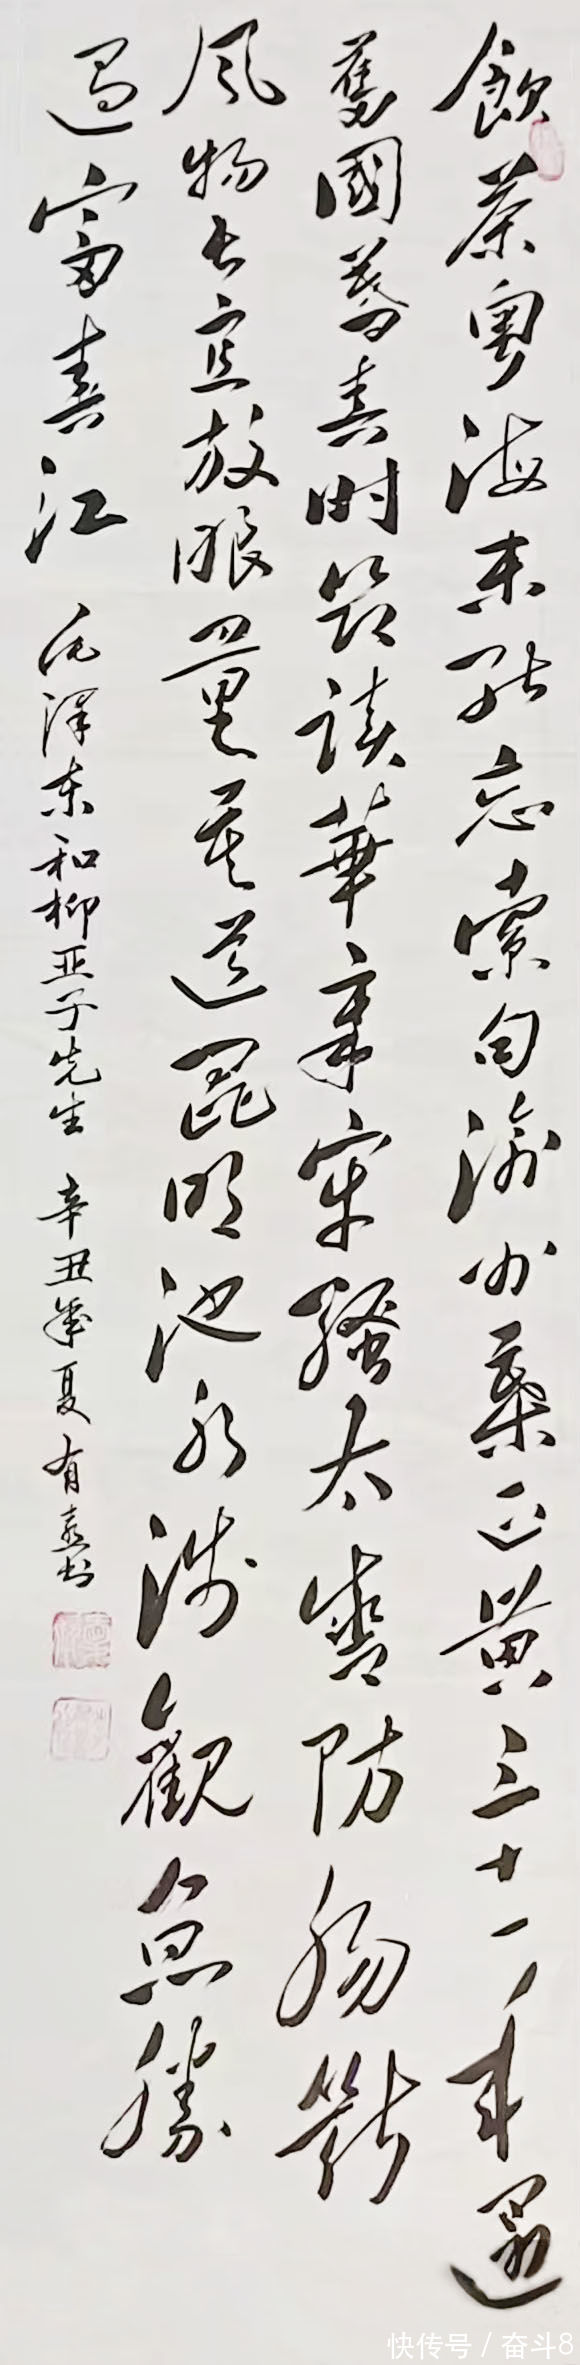 飲茶粵海未能忘索句渝州葉正黃三十一年還
舊國暮春時節讀華章牢騷太盛防腸斷
風物长宜放眼量莫道昆明池水淺觀魚勝
過富春江 毛泽东和柳亚子先生 辛丑年夏 有 书
快传号 / 奋斗8